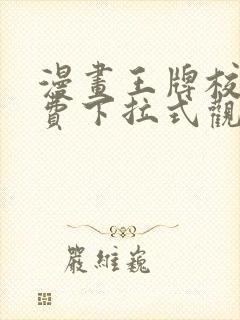 漫畫王牌校
費下拉式觀
嚴維巍